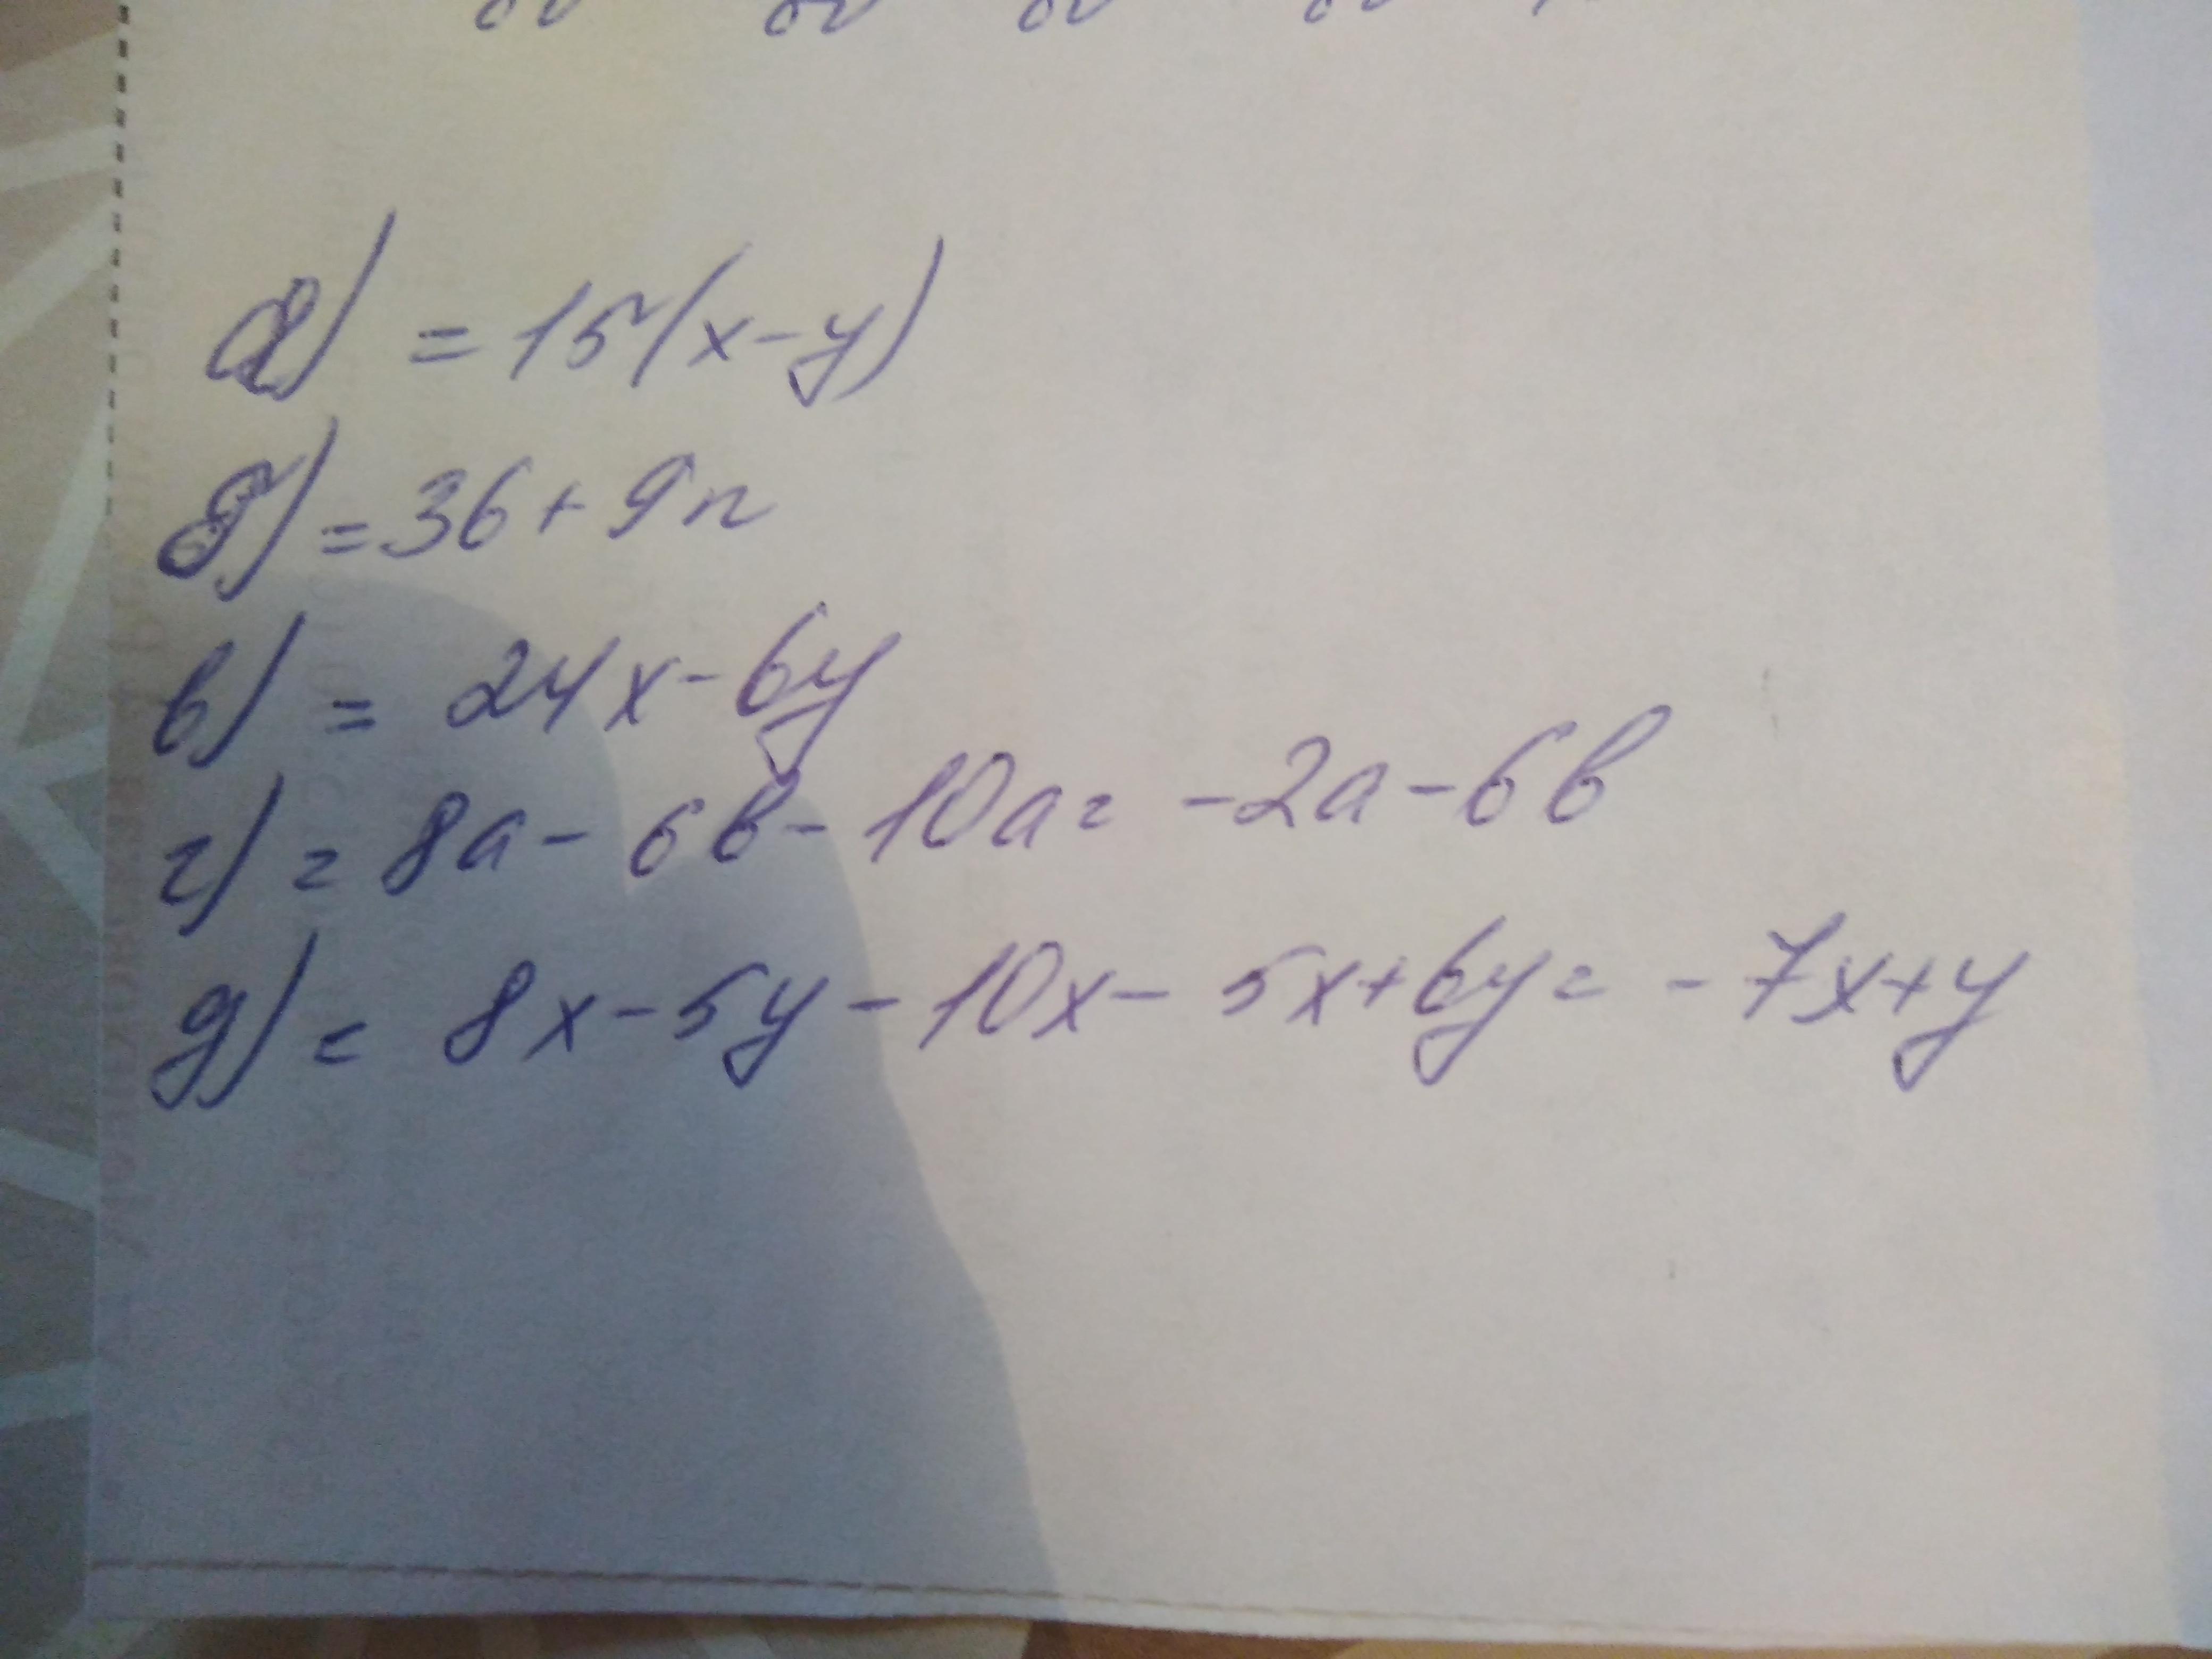 а) = 15(x-y)
б) = 36 + 9n
в) = 24x - 6y
г) = 8a - 6в - 10a = -2a - 6в
д) = 8x - 5y - 10x - 5x + 6y = -7x + y